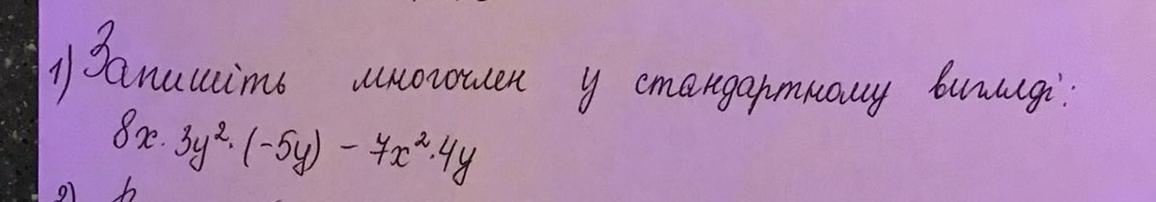 1) Запишіть многочлен у стандартному вигляді:
8x · 3y² · (-5y) - 7x² · 4y
2)